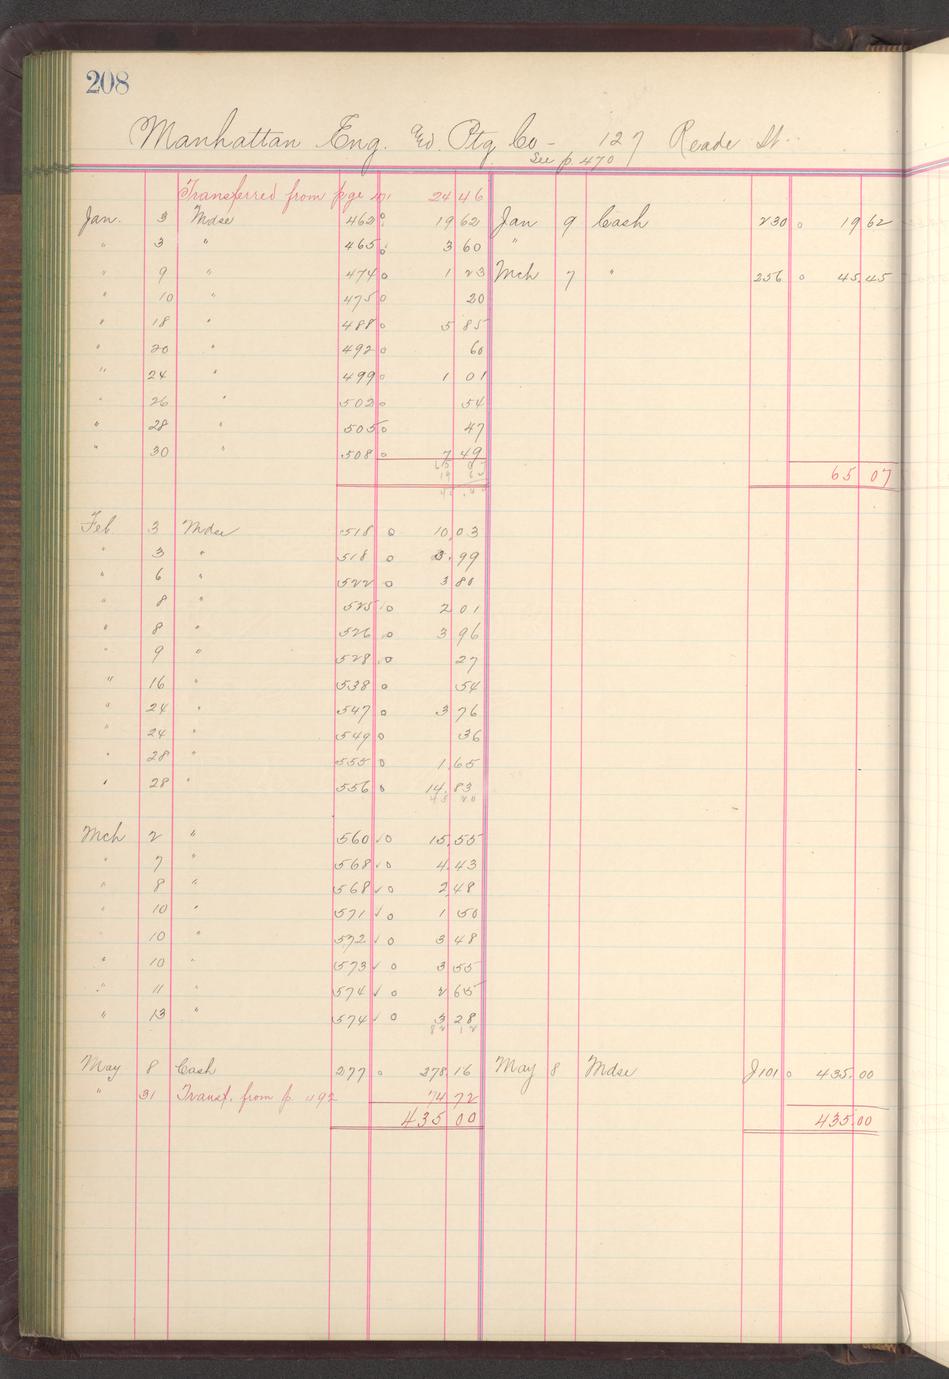 208
Manhattan Eng. and Ptg Co - 127 Reade St.
See p 470
Transferred from page 24 46
Jan. 3 Mdse 462 o 19 62 Jan 9 Cash 230 o 19 62
" 3 " 465 o 3 60 "
" 9 " 474 o 1 23 Mch 7 " 256 o 45.45
" 10 " 475 o 20
" 18 " 488 o 5 85
" 20 " 492 o 60
" 24 " 499 o 1 01
" 26 " 502 o 54
" 28 " 505 o 47
" 30 " 508 o 7 49
65 07 65 07
19 62
45 45
Feb. 3 Mdse 518 o 10,03
" 3 " 518 o 3.99
" 6 " 522 o 3 80
" 8 " 525 o 2 01
" 8 " 526 o 3 96
" 9 " 528 o 27
" 16 " 538 o 54
" 24 " 547 o 3 76
" 24 " 549 o 36
" 28 " 555 o 1.65
" 28 " 556 o 14.83
45 20
Mch 2 " 560 ✓ o 15.55
" 7 " 568 ✓ o 4.43
" 8 " 568 ✓ o 2.48
" 10 " 571 ✓ o 1 50
" 10 " 572 ✓ o 3 48
" 10 " 573 ✓ o 3 55
" 11 " 574 ✓ o 2 65
" 13 " 574 ✓ o 3 28
82 12
May 8 Cash 277 o 278.16 May 8 Mdse J101 o 435.00
" 31 Transf. from p 192 74 72
435 00 435.00